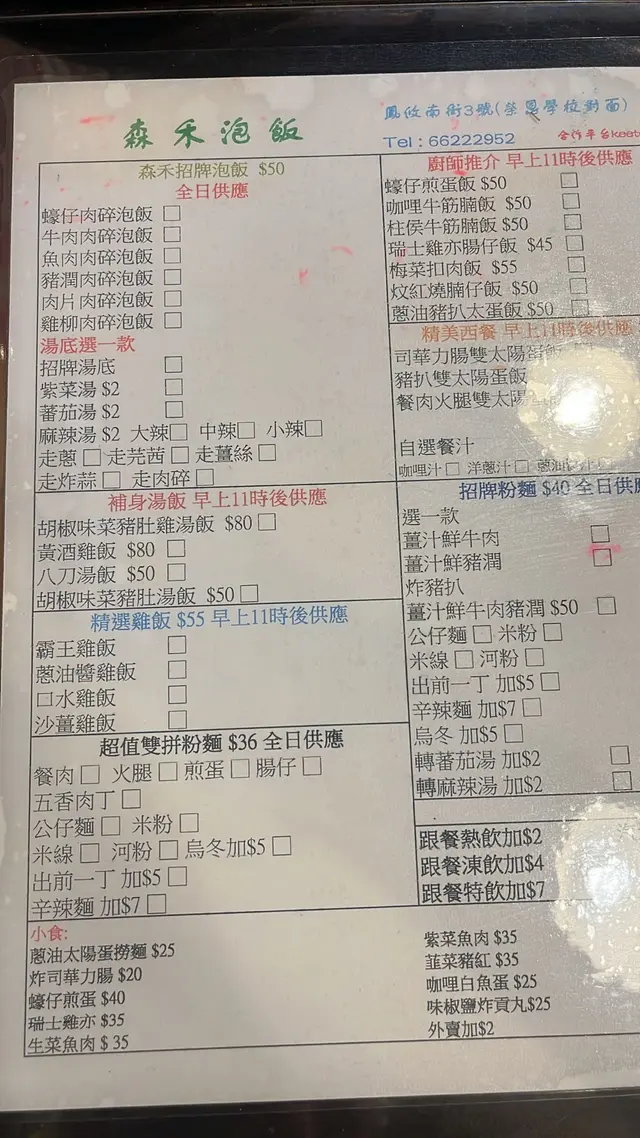 森禾泡飯
鳳攸南街3號(榮恩學校對面)
Tel：66222952
合作平台keeta
森禾招牌泡飯 $50
全日供應
蠔仔肉碎泡飯 □
牛肉肉碎泡飯 □
魚肉肉碎泡飯 □
豬潤肉碎泡飯 □
肉片肉碎泡飯 □
雞柳肉碎泡飯 □
湯底選一款
招牌湯底 □
紫菜湯 $2 □
蕃茄湯 $2 □
麻辣湯 $2 大辣□ 中辣□ 小辣□
走蔥 □ 走芫茜 □ 走薑絲 □
走炸蒜 □ 走肉碎 □
補身湯飯 早上11時後供應
胡椒味菜豬肚雞湯飯 $80 □
黃酒雞飯 $80 □
八刀湯飯 $50 □
胡椒味菜豬肚湯飯 $50 □
精選雞飯 $55 早上11時後供應
霸王雞飯 □
蔥油醬雞飯 □
口水雞飯 □
沙薑雞飯 □
超值雙拼粉麵 $36 全日供應
餐肉 □ 火腿 □ 煎蛋 □ 腸仔 □
五香肉丁 □
公仔麵 □ 米粉 □
米線 □ 河粉 □ 烏冬加$5 □
出前一丁 加$5 □
辛辣麵 加$7 □
廚師推介 早上11時後供應
蠔仔煎蛋飯 $50 □
咖哩牛筋腩飯 $50 □
柱侯牛筋腩飯 $50 □
瑞士雞亦腸仔飯 $45 □
梅菜扣肉飯 $55 □
炆紅燒腩仔飯 $50 □
蔥油豬扒太蛋飯 $50 □
精美西餐 早上11時後供應
司華力腸雙太陽蛋飯
豬扒雙太陽蛋飯
餐肉火腿雙太陽
自選餐汁
咖哩汁 □ 洋蔥汁 □ 蔥油
招牌粉麵 $40 全日供應
選一款
薑汁鮮牛肉 □
薑汁鮮豬潤 □
炸豬扒
薑汁鮮牛肉豬潤 $50 □
公仔麵 □ 米粉 □
米線 □ 河粉 □
出前一丁 加$5 □
辛辣麵 加$7 □
烏冬 加$5 □
轉蕃茄湯 加$2 □
轉麻辣湯 加$2 □
跟餐熱飲加$2
跟餐凍飲加$4
跟餐特飲加$7
小食:
蔥油太陽蛋撈麵 $25
炸司華力腸 $20
蠔仔煎蛋 $40
瑞士雞亦 $35
生菜魚肉 $ 35
紫菜魚肉 $35
韮菜豬紅 $35
咖哩白魚蛋 $25
味椒鹽炸貢丸$25
外賣加$2